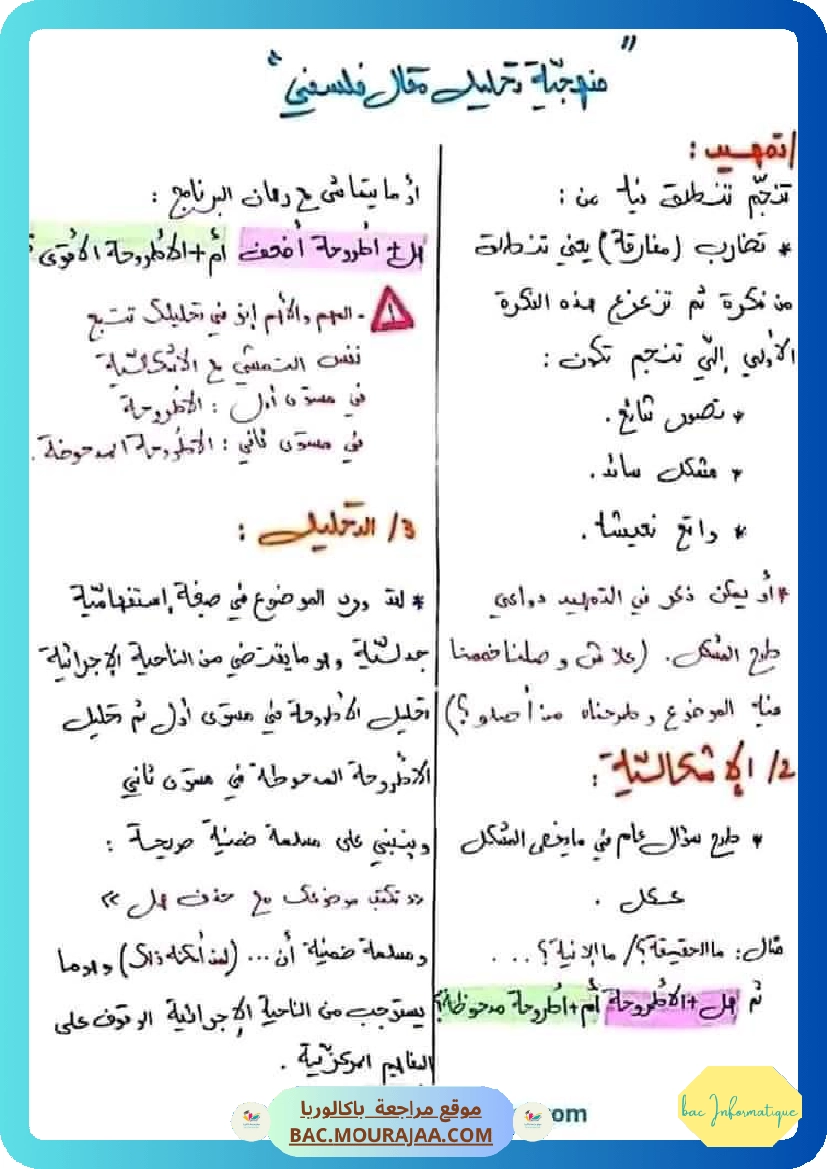 "منهجيّة تحليل مقال فلسفي"
1/تمهيد :
تنجّم تنطلق فيه من :
* تضارب (مفارقة) يعني تنطلق
من فكرة ثم تزعزع هذه الفكرة
الأولى إلّي تنجم تكون :
* تصور شائع.
* مشكل سائد.
* واقع نعيشه.
* أو يمكن ذكر في التمهيد دواعي
طرح المشكل. (علاش وصلنا خممنا
فيه الموضوع وطرحناه من أصلو؟)
2/ الإشكاليّة :
* طرح سؤال عام في ما يخص المشكل
ككل .
مثال: ما الحقيقة؟/ ما الإنية؟ ...
ثم هل+الأطروحة أم+أطروحة مدحوظة؟
أو ما يتماشى مع رهان البرنامج :
هل+ أطروحة أضعف أم+الأطروحة الأقوى
- المهم والأهم إنو في تحليلك تتبع
نفس التمشي مع الإشكاليّة
في مستوى أول : الأطروحة
في مستوى ثاني : الأطروحة المدحوضة.
3/ التحليل :
* لقد ورد الموضوع في صيغة إستفهاميّة
جدليّة وهو ما يقتضي من الناحية الإجرائية
تحليل الأطروحة في مستوى أول ثم تحليل
الأطروحة المدحوظة في مستوى ثاني
وينبني على مسلمة ضمنية صريحة :
<< تكتب موضوعك مع حذف هل >>
ومسلمة ضمنية أن... (... ذلك) وهو ما
يستوجب من الناحية الإجرائية الوقوف على
المفاهيم المركزيّة .
موقع مراجعة باكالوريا
BAC.MOURAJAA.COM
om
bac Informatique